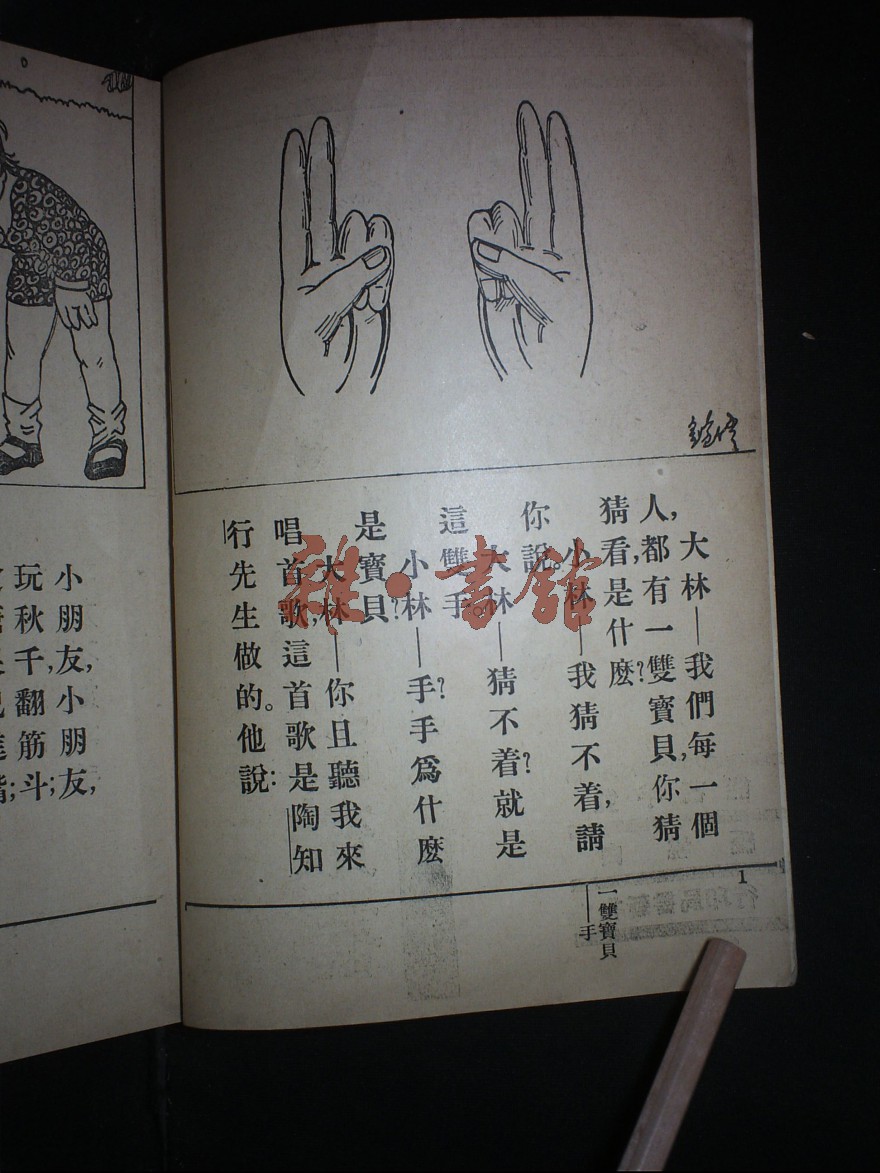 大林——我們每一個
人,都有一雙寶貝,你猜
猜看,是什麽?
小林——我猜不着,請
你說。
大林——猜不着?就是
這雙手。
小林——手?手爲什麽
是寶貝?
大林——你且聽我來
唱首歌,這首歌是陶知
行先生做的。他說:
1
一雙寶貝
——手
小朋友,小朋友,
玩秋千,翻筋斗;
雅·書館